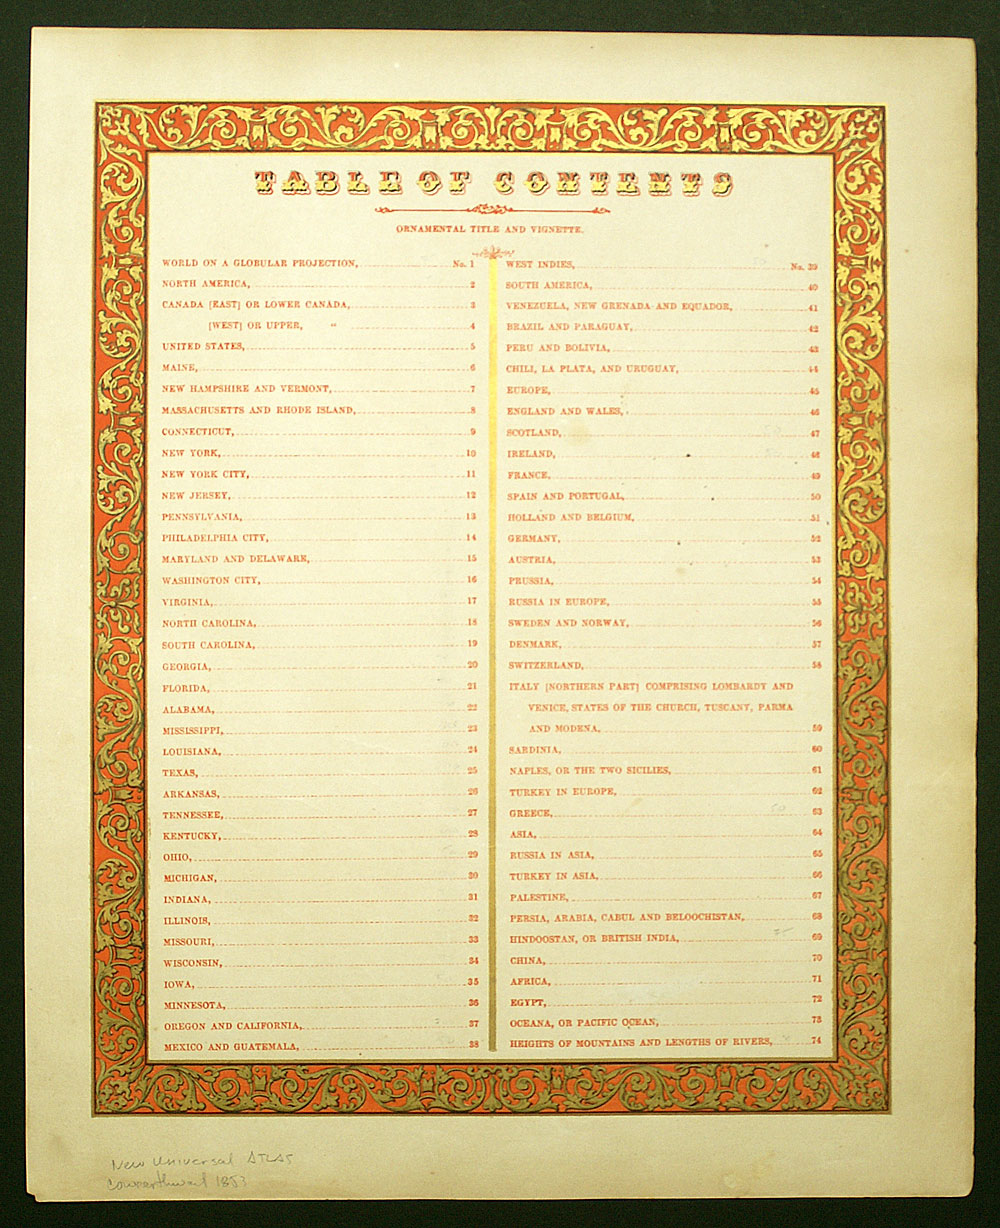 TABLE OF CONTENTS
ORNAMENTAL TITLE AND VIGNETTE.
WORLD ON A GLOBULAR PROJECTION, No. 1
NORTH AMERICA, 2
CANADA [EAST] OR LOWER CANADA, 3
[WEST] OR UPPER, " 4
UNITED STATES, 5
MAINE, 6
NEW HAMPSHIRE AND VERMONT, 7
MASSACHUSETTS AND RHODE ISLAND, 8
CONNECTICUT, 9
NEW YORK, 10
NEW YORK CITY, 11
NEW JERSEY, 12
PENNSYLVANIA, 13
PHILADELPHIA CITY, 14
MARYLAND AND DELAWARE, 15
WASHINGTON CITY, 16
VIRGINIA, 17
NORTH CAROLINA, 18
SOUTH CAROLINA, 19
GEORGIA, 20
FLORIDA, 21
ALABAMA, 22
MISSISSIPPI, 23
LOUISIANA, 24
TEXAS, 25
ARKANSAS, 26
TENNESSEE, 27
KENTUCKY, 28
OHIO, 29
MICHIGAN, 30
INDIANA, 31
ILLINOIS, 32
MISSOURI, 33
WISCONSIN, 34
IOWA, 35
MINNESOTA, 36
OREGON AND CALIFORNIA, 37
MEXICO AND GUATEMALA, 38
WEST INDIES, No. 39
SOUTH AMERICA, 40
VENEZUELA, NEW GRENADA AND EQUADOR, 41
BRAZIL AND PARAGUAY, 42
PERU AND BOLIVIA, 43
CHILI, LA PLATA, AND URUGUAY, 44
EUROPE, 45
ENGLAND AND WALES, 46
SCOTLAND, 47
IRELAND, 48
FRANCE, 49
SPAIN AND PORTUGAL, 50
HOLLAND AND BELGIUM, 51
GERMANY, 52
AUSTRIA, 53
PRUSSIA, 54
RUSSIA IN EUROPE, 55
SWEDEN AND NORWAY, 56
DENMARK, 57
SWITZERLAND, 58
ITALY [NORTHERN PART] COMPRISING LOMBARDY AND
VENICE, STATES OF THE CHURCH, TUSCANY, PARMA
AND MODENA, 59
SARDINIA, 60
NAPLES, OR THE TWO SICILIES, 61
TURKEY IN EUROPE, 62
GREECE, 63
ASIA, 64
RUSSIA IN ASIA, 65
TURKEY IN ASIA, 66
PALESTINE, 67
PERSIA, ARABIA, CABUL AND BELOOCHISTAN, 68
HINDOOSTAN, OR BRITISH INDIA, 69
CHINA, 70
AFRICA, 71
EGYPT, 72
OCEANA, OR PACIFIC OCEAN, 73
HEIGHTS OF MOUNTAINS AND LENGTHS OF RIVERS, 74
New Universal ATLAS
1853